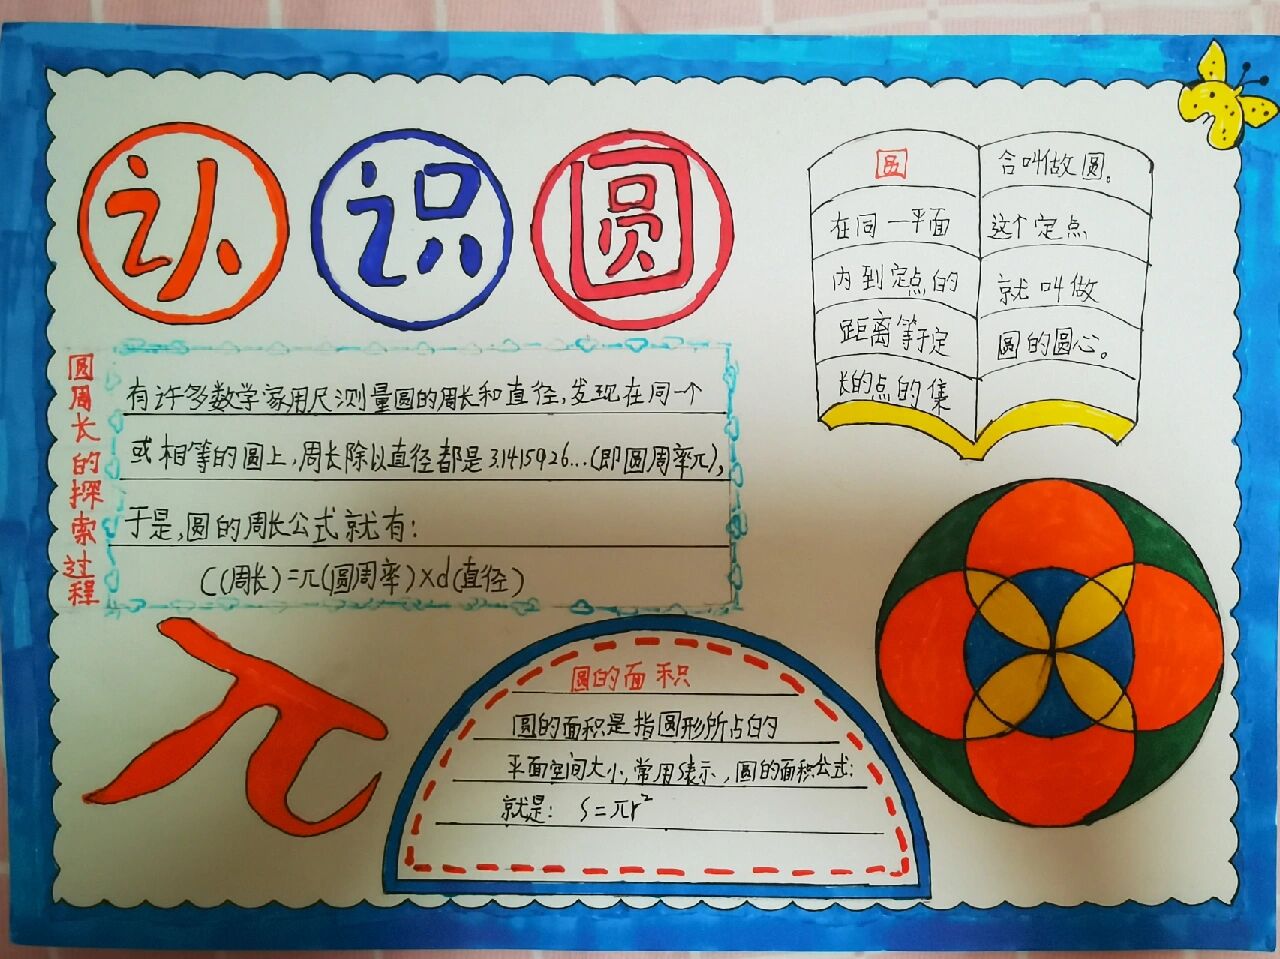 认识圆
圆
在同一平面
内到定点的
距离等于定
长的点的集
合叫做圆。
这个定点
就叫做
圆的圆心。
圆周长的探索过程
有许多数学家用尺测量圆的周长和直径,发现在同一个
或相等的圆上,周长除以直径都是3.1415926...(即圆周率π),
于是,圆的周长公式就有:
C(周长)=π(圆周率)×d(直径)
π
圆的面积
圆的面积是指圆形所占的
平面空间大小,常用S表示,圆的面积公式:
就是: S=πr²